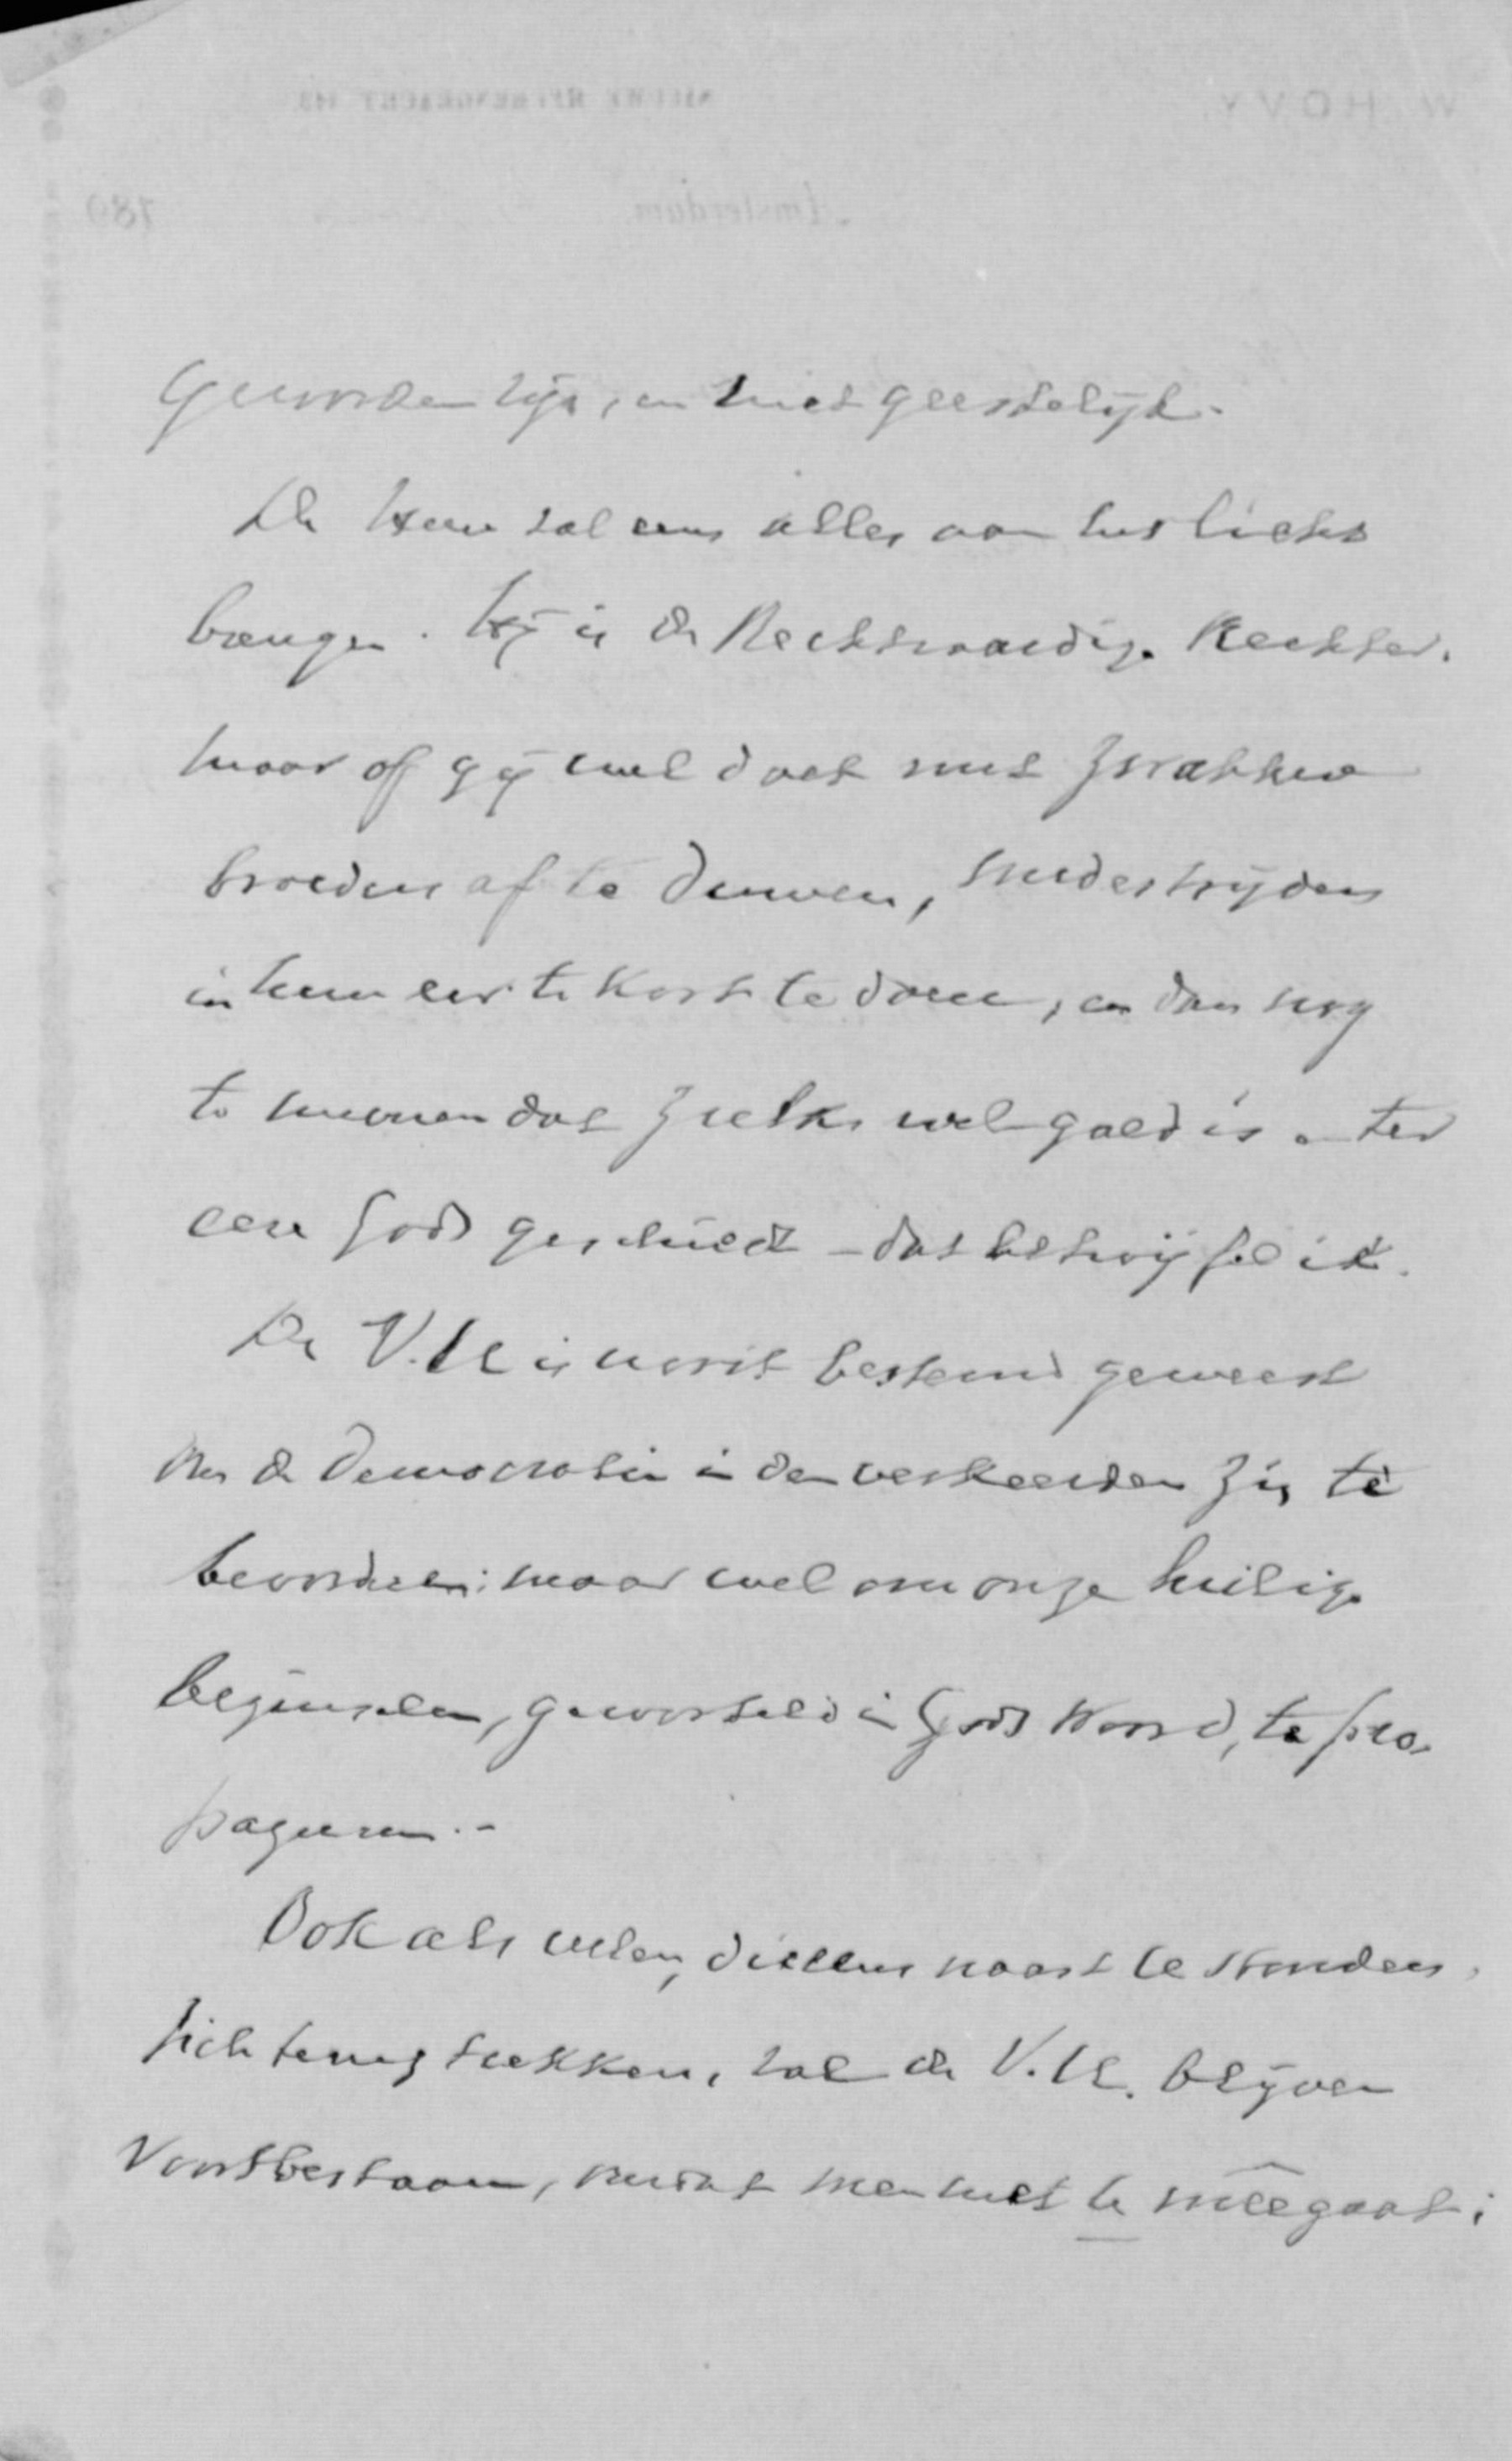 geworden zijn, en niet geestelijk.
De Heer zal eens alles aan het licht
brengen. Hij is de Rechtvaardige Rechter.
Maar of gij wel doet met zwakke
broeders af te duwen, medestrijders
in hun eer te kort te doen, en dan nog
te meenen dat zulks wel goed is en ter
eere Gods geschiedt - dat betwijfel ik.
De V.U. is nooit bestemd geweest
om de Democratie in den verkeerden zin te
bevorderen; maar wel om onze heilige
beginselen, geworteld in Gods Woord, te pro-
pageeren.-
Ook als velen, die naast stonden,
zich terug trekken, zal de V.U. blijven
voortbestaan, mits men niet te meêgaat;